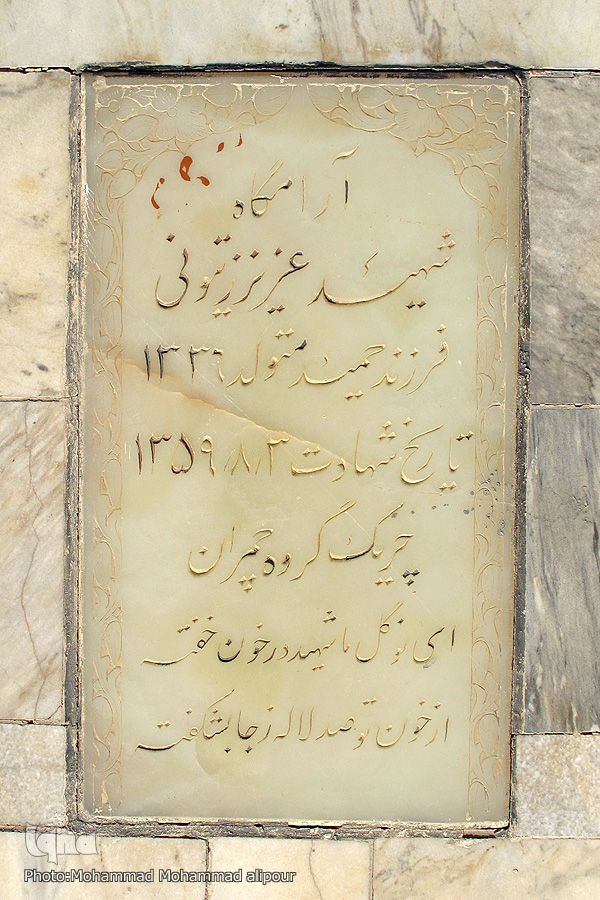 آرامگاه
شهید عزیز زیتونی
فرزند حمید متولد ۱۳۳۶
تاریخ شهادت ۱۳۵۹/۸/۳
چریک گروه چمران
ای نوگل ما شهید در خون خفته
از خون تو صد لاله ز جا بشکفته
iqna
Photo:Mohammad Mohammad alipour